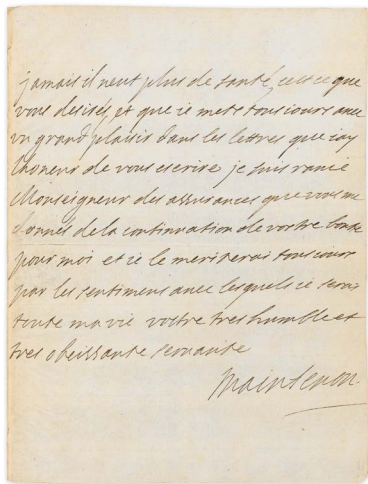 jamais il neut plus de santé, cest ce que
vous desirés, et que ie mets tousiours avec
vn grand plaisir dans les lettres que iay
lhoneur de vous escrire je suis ravie
Monseigneur des assurances que vous me
donnés de la continuation de vostre bonté
pour moi et ie le meriterai tousiours
par les sentimens avec lesquels ie serai
toute ma vie vostre tres humble et
tres obeissante servante
Maintenon.